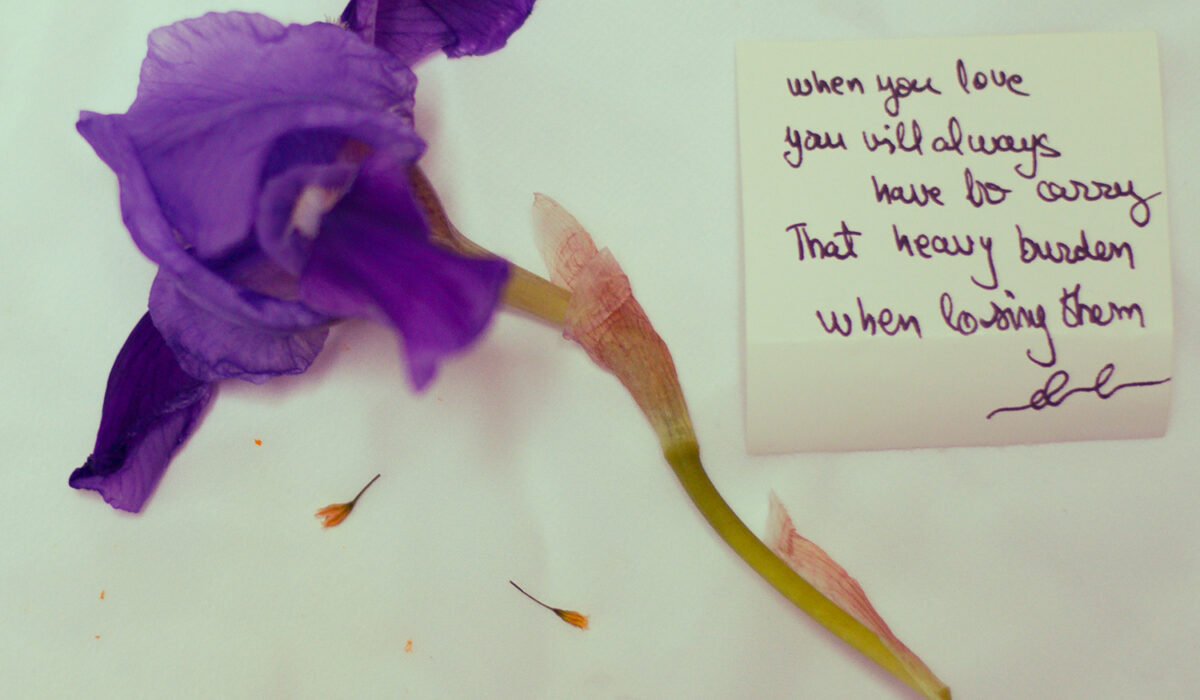 when you love
you will always
have to carry
That heavy burden
when losing them